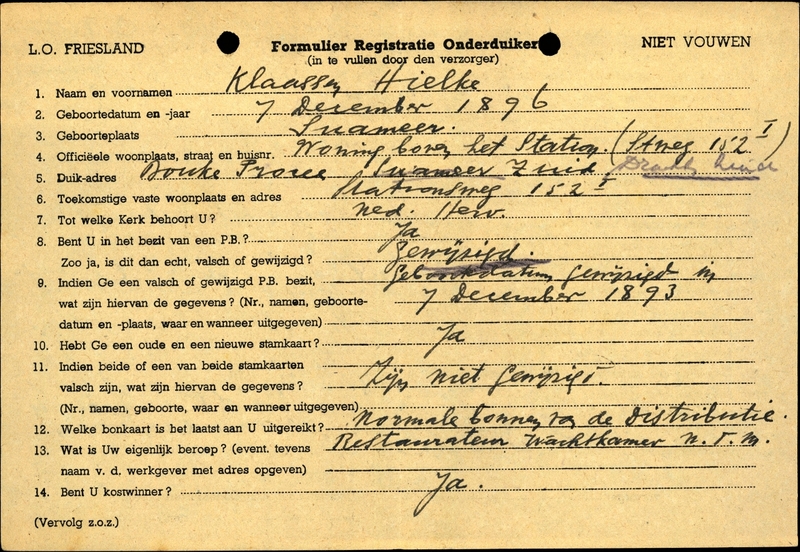 L.O. FRIESLAND
Formulier Registratie Onderduiker
NIET VOUWEN
(in te vullen door den verzorger)
1. Naam en voornamen Klaassen, Hielke
2. Geboortedatum en -jaar 7 December 1896
3. Geboorteplaats Suameer.
4. Officiëele woonplaats, straat en huisnr. Woning boven het Station. (Stweg 152 I)
5. Duik-adres Bouke Procee Suameer Zuid
6. Toekomstige vaste woonplaats en adres Stationsweg 152 I
7. Tot welke Kerk behoort U? ned. Herv.
8. Bent U in het bezit van een P.B.? Ja
Zoo ja, is dit dan echt, valsch of gewijzigd? Gewijzigd.
9. Indien Ge een valsch of gewijzigd P.B. bezit, Geboortedatum gewijzigd in
wat zijn hiervan de gegevens? (Nr., namen, geboorte- 7 December 1893
datum en -plaats, waar en wanneer uitgegeven)
10. Hebt Ge een oude en een nieuwe stamkaart? Ja
11. Indien beide of een van beide stamkaarten
valsch zijn, wat zijn hiervan de gegevens? Zijn niet gewijzigd.
(Nr., namen, geboorte, waar en wanneer uitgegeven)
12. Welke bonkaart is het laatst aan U uitgereikt? Normale bonnen van de Distributie.
13. Wat is Uw eigenlijk beroep? (event. tevens Restaurateur Wachtkamer N.T.M.
naam v. d. werkgever met adres opgeven)
14. Bent U kostwinner? Ja.
(Vervolg z.o.z.)